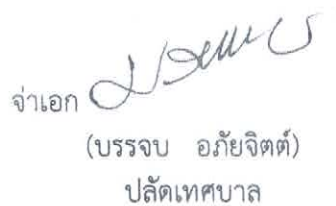 จ่าเอก
(บรรจบ อภัยจิตต์)
ปลัดเทศบาล